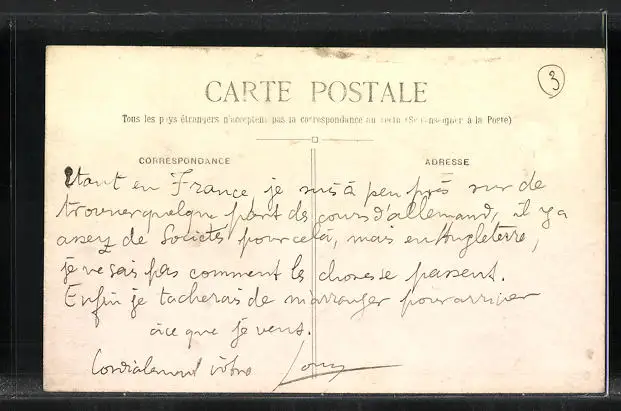 3
CARTE POSTALE
Tous les pays étrangers n'acceptent pas la correspondance au recto (Se renseigner à la Poste)
CORRESPONDANCE
ADRESSE
Etant en France je suis à peu près sur de
trouver quelque part des cours d'allemand, il y a
assez de Sociétés pour celà, mais en Angleterre,
je ne sais pas comment les choses se passent.
Enfin je tacherais de m'arranger pour arriver
à ce que je veux.
Cordialement vôtre